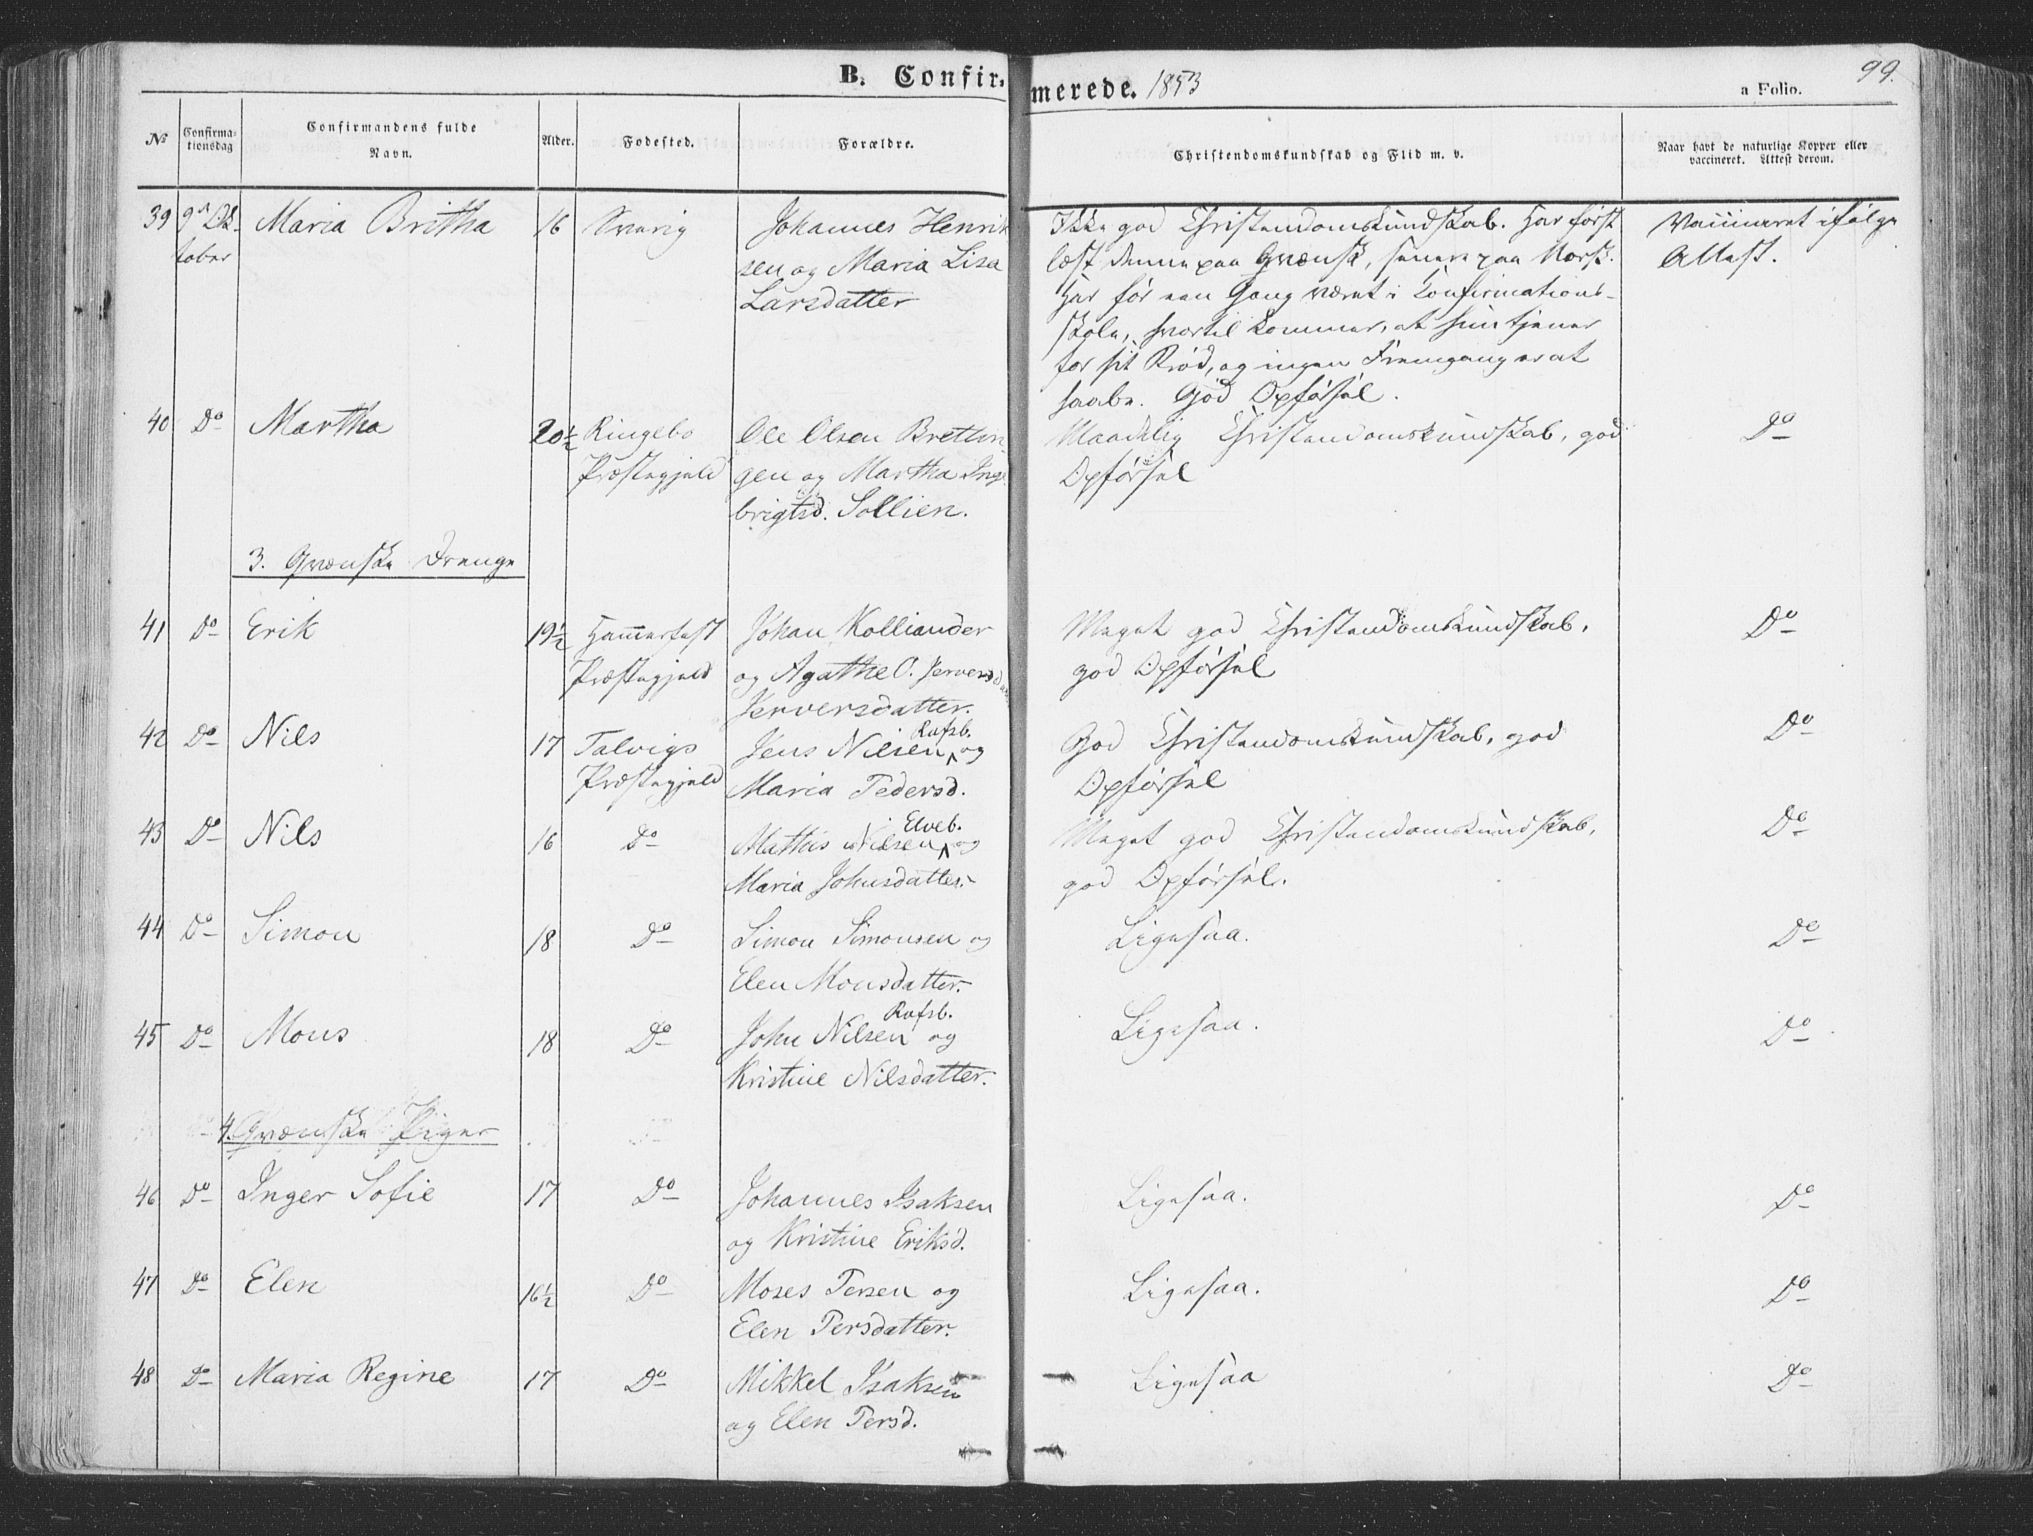 B. Confirmerede. 1853
a Folio. 99.
№ Confirmationsdag Confirmandens fulde Navn. Alder. Fødested. Forældre. Christendomskundskab og Flid m. v. Naar havt de naturlige Kopper eller vaccineret. Attest derom.
39 9d Oktober Maria Britha 16 Sverig Johannes Henrik
sen og Maria Lisa
Larsdatter
Ikke god Christendomskundskab. Har først
læst denne paa Qvænsk, senere paa Norsk.
Har før een Gang været i Confirmations-
skole, hvortil kommer, at hun tjener
for sit Brød, og ingen Fremgang er at
haabe. God Opførsel.
Vaccineret ifølge
Attest.
40 Do Martha 20½ Ringebo
Præstegjeld
Ole Olsen Brettin
gen og Martha Inge
brigtsd. Sollien.
Maadelig Christendomskundskab, god
Opførsel
Do
3. Qvænske Drenge
41 Do Erik 19½ Hammerfest
Præstegjeld
Johan Kolliander
og Agathe C.
Jerversdatter.
Meget god Christendomskundskab,
god Opførsel
Do
42 Do Nils 17 Talvigs
Præstegjeld
Jens Nilsen Rafsb. og
Maria Pedersd.
God Christendomskundskab, god
Opførsel
Do
43 Do Nils 16 Do
Mathis Nilsen Elveb. og
Maria Johnsdatter.
Meget god Christendomskundskab,
god Opførsel.
Do
44 Do Simon 18 Do
Simon Simonsen og
Elen Monsdatter.
Ligesaa.
Do
45 Do Mons 18 Do
John Nilsen Rafsb. og
Kristine Nilsdatter.
Ligesaa.
Do
4. Qvænske Piger
46 Do Inger Sofie 17 Do
Johannes Isaksen
og Kristine Eriksd.
Ligesaa.
Do
47 Do Elen 16½ Do
Moses Persen og
Elen Persdatter.
Ligesaa.
Do
48 Do Maria Regine 17 Do
Mikkel Isaksen
og Elen Persd.
Ligesaa
Do